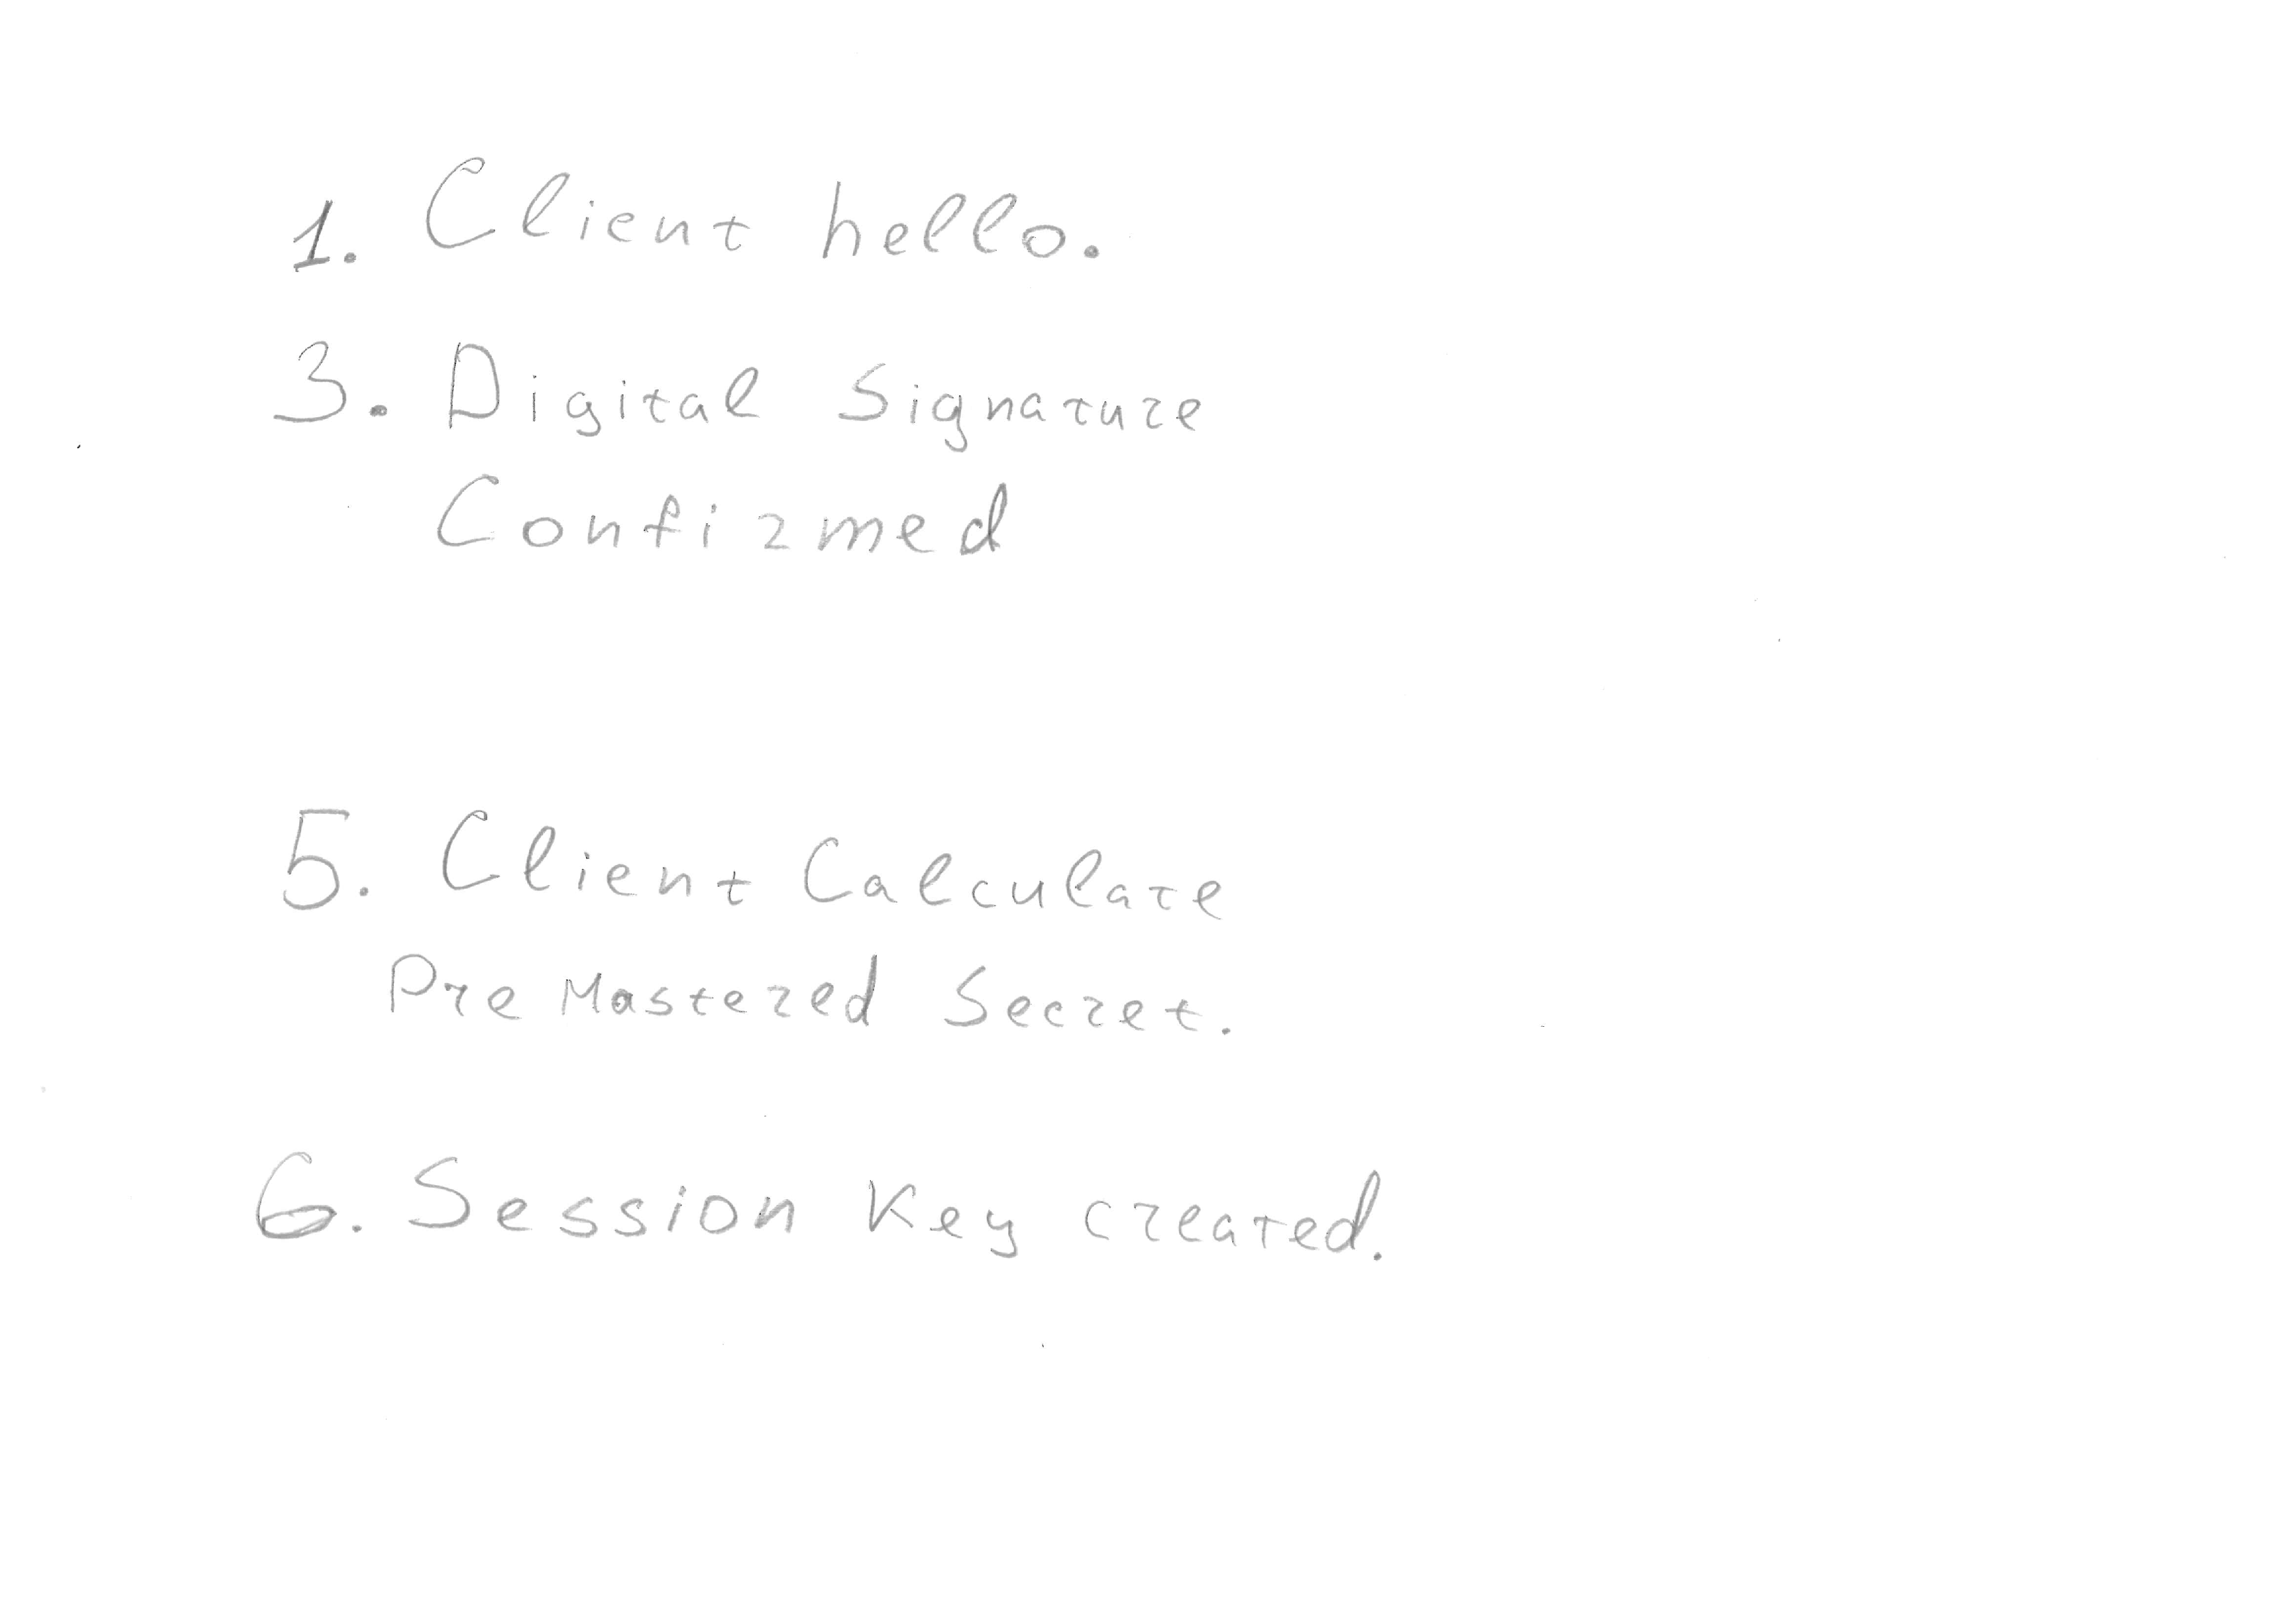 1. Client hello.
3. Digital Signature
Confirmed
5. Client Calculate
Pre Mastered Secret.
6. Session Key created.